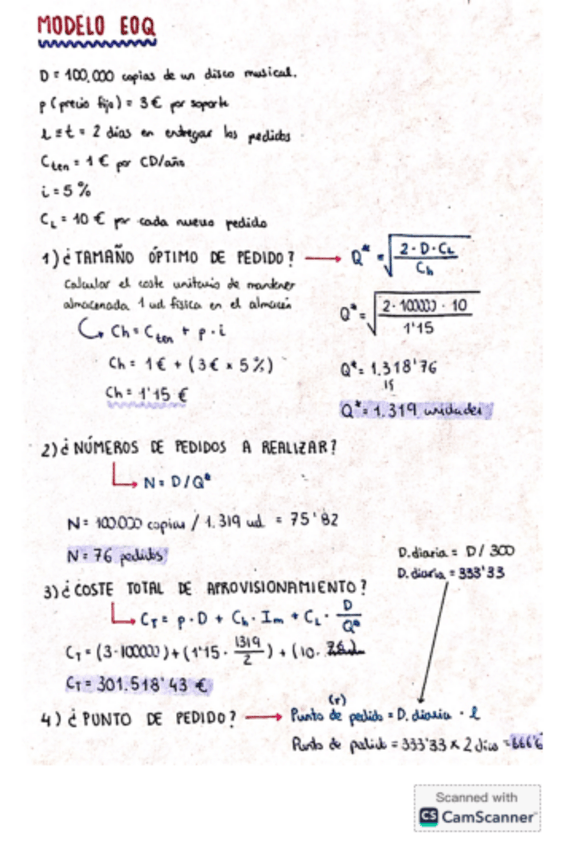 MODELO EOQ
D = 100.000 copias de un disco musical.
p (precio fijo) = 3€ por soporte
l ≡ t = 2 días en entregar los pedidos
Cten = 1 € por CD/año
i = 5%
CL = 10 € por cada nuevo pedido
1) ¿TAMAÑO ÓPTIMO DE PEDIDO? → Q* = √(2·D·CL / Ch)
Calcular el coste unitario de mantener
almacenada 1 ud física en el almacén
Q* = √(2·100000·10 / 1'15)
↳ Ch = Cten + p·i
Ch = 1€ + (3€ × 5%)
Ch = 1'15 €
Q* = 1.318'76
Q* = 1.319 unidades
2) ¿NÚMEROS DE PEDIDOS A REALIZAR?
↳ N = D/Q*
N = 100000 copias / 1.319 ud = 75'82
N = 76 pedidos
D.diaria = D / 300
D.diaria = 333'33
3) ¿COSTE TOTAL DE APROVISIONAMIENTO?
↳ CT = p·D + Ch·Im + CL·D/Q*
CT = (3·100000) + (1'15·1319/2) + (10·
CT = 301.518'43 €
4) ¿PUNTO DE PEDIDO? → Punto de pedido (r) = D.diaria · l
Punto de pedido = 333'33 × 2 días = 666'6
Scanned with
CS CamScanner